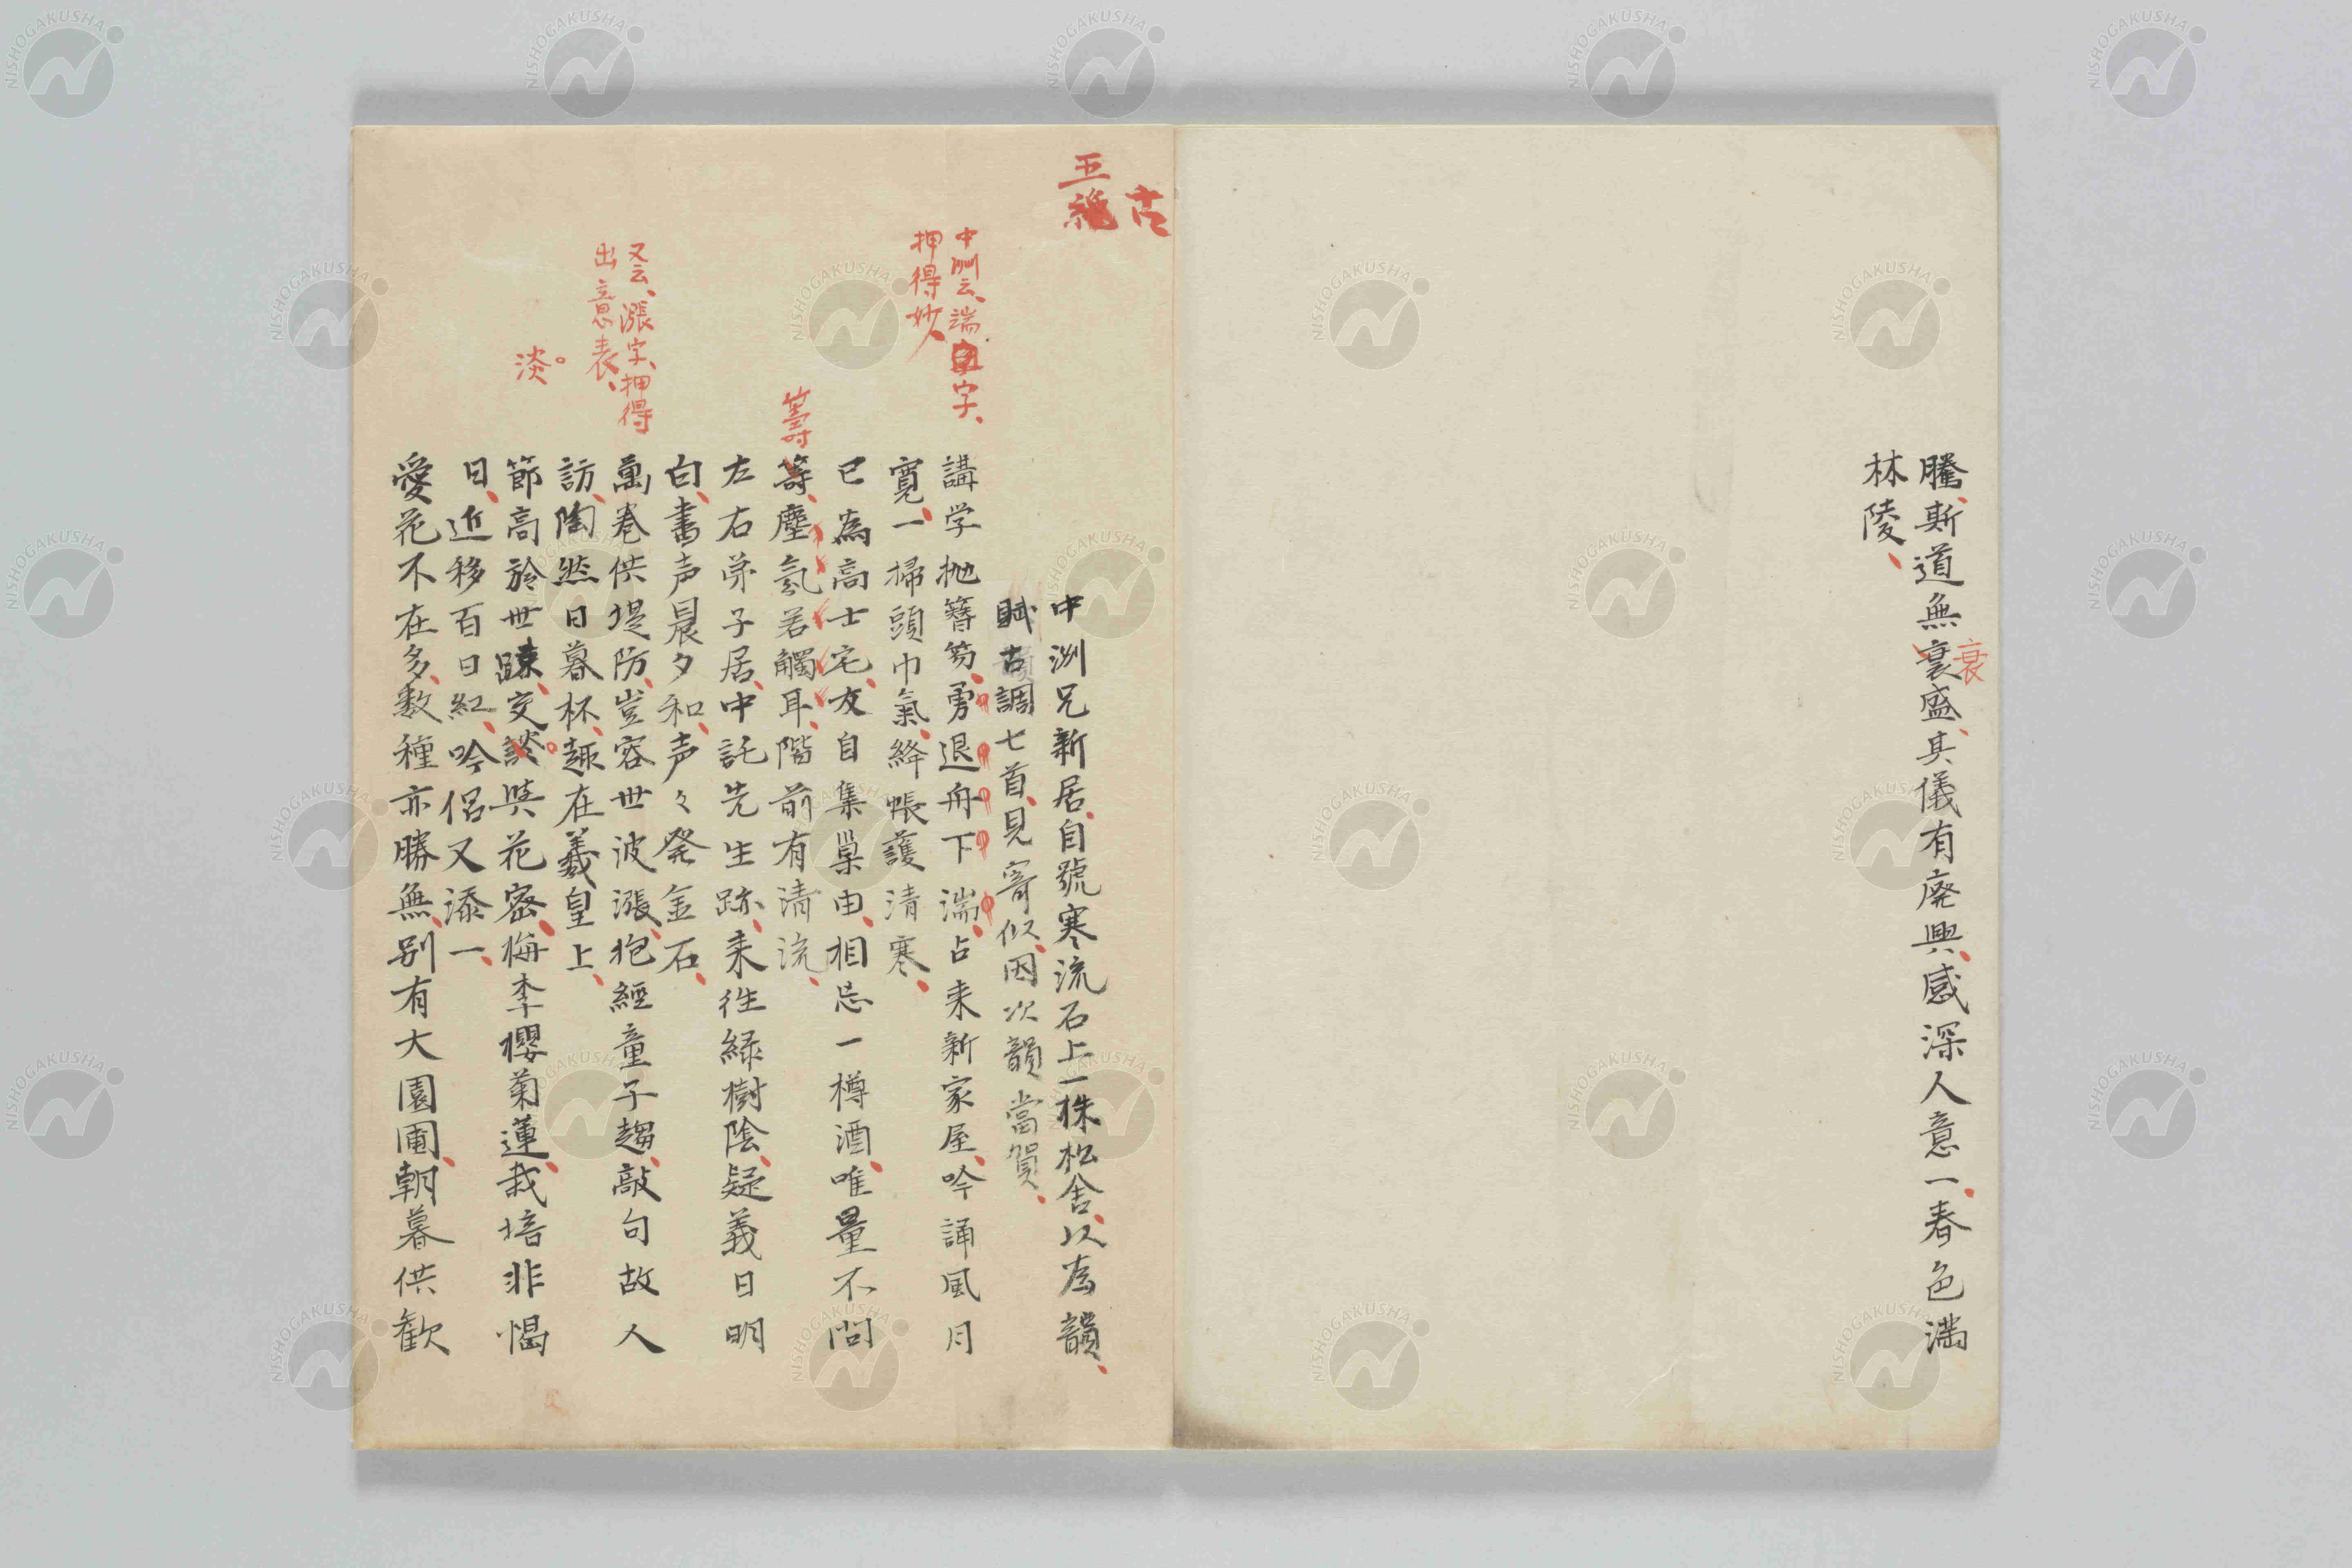 騰斯道無衰盛其儀有廃興感深人意一春色満
衰
林陵
古
五絶
中洲兄新居自號寒流石上一株松舎以為韻
賦古調七首見寄似因次韻當賀
中洲云湍字
押得妙
講学抛簪笏勇退舟下湍占来新家屋吟誦風月
寛一掃頭巾氣絳帳護清寒
已為高士宅友自集巣由相忘一樽酒唯量不問
籌
籌塵氛若觸耳階前有清流
左右弟子居中託先生跡来往緑樹陰疑義日明
白書声晨夕和声々発金石
又云漲字押得
出意表
萬巻供堤防豈容世波漲抱經童子趨敲句故人
訪陶然日暮杯趣在羲皇上
淡
節高於世踈交談與花密梅李櫻菊蓮栽培非惕
日近移百日紅吟侶又添一
愛花不在多数種亦勝無別有大園圃朝暮供歓
NISHOGAKUSHA